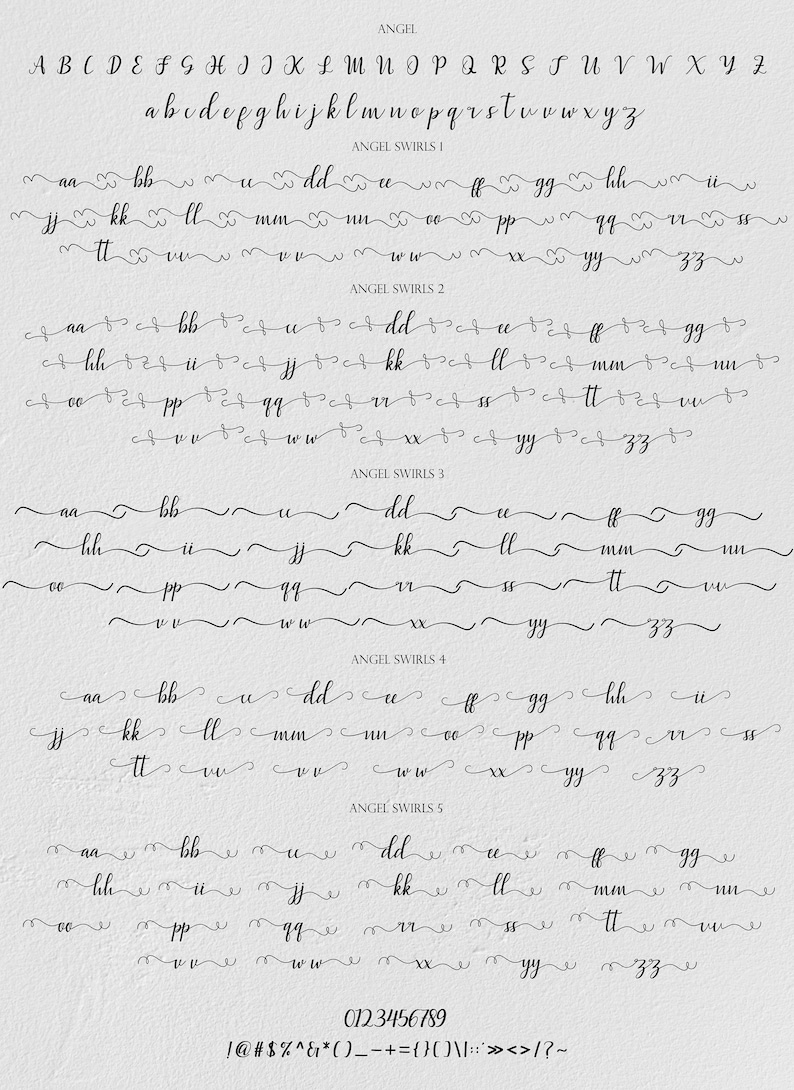 ANGEL
A B C D E F G H I J K L M N O P Q R S T U V W X Y Z
a b c d e f g h i j k l m n o p q r s t u v w x y z
ANGEL SWIRLS 1
aa bb cc dd ee ff gg hh ii
jj kk ll mm nn oo pp qq rr ss
tt uu v v w w xx yy zz
ANGEL SWIRLS 2
aa bb cc dd ee ff gg
hh ii jj kk ll mm nn
oo pp qq rr ss tt uu
v v w w xx yy zz
ANGEL SWIRLS 3
aa bb cc dd ee ff gg
hh ii jj kk ll mm nn
oo pp qq rr ss tt uu
v v w w xx yy zz
ANGEL SWIRLS 4
aa bb cc dd ee ff gg hh ii
jj kk ll mm nn oo pp qq rr ss
tt uu v v w w xx yy zz
ANGEL SWIRLS 5
aa bb cc dd ee ff gg
hh ii jj kk ll mm nn
oo pp qq rr ss tt uu
v v w w xx yy zz
0123456789
!@#$%^&*()_-+={}[]\|:;'»<>/?~